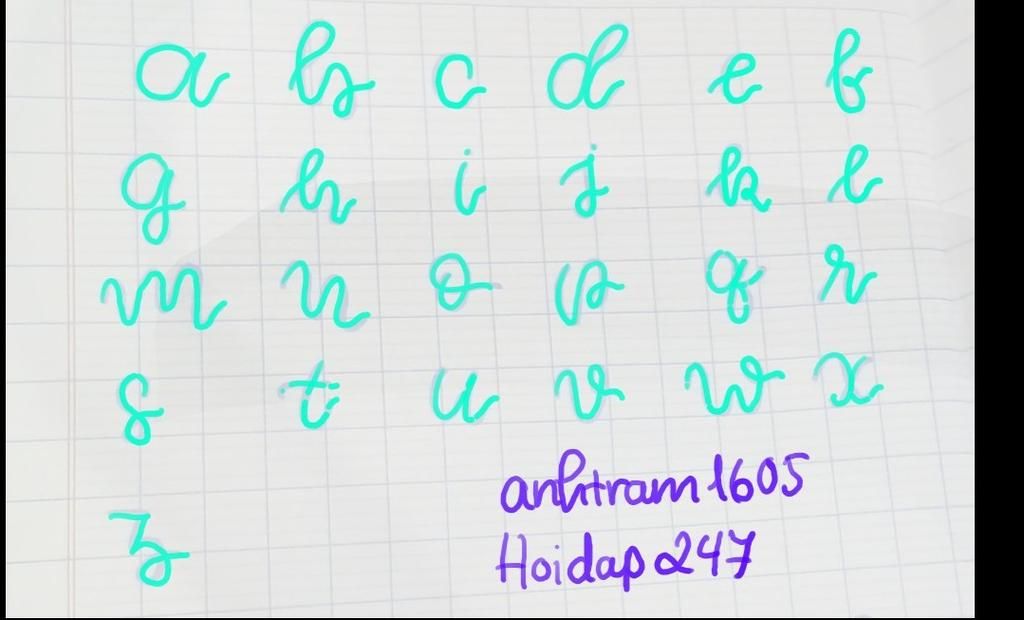 a b c d e f
g h i j k l
m n o p q r
s t u v w x
z
anhtram1605
Hoidap247